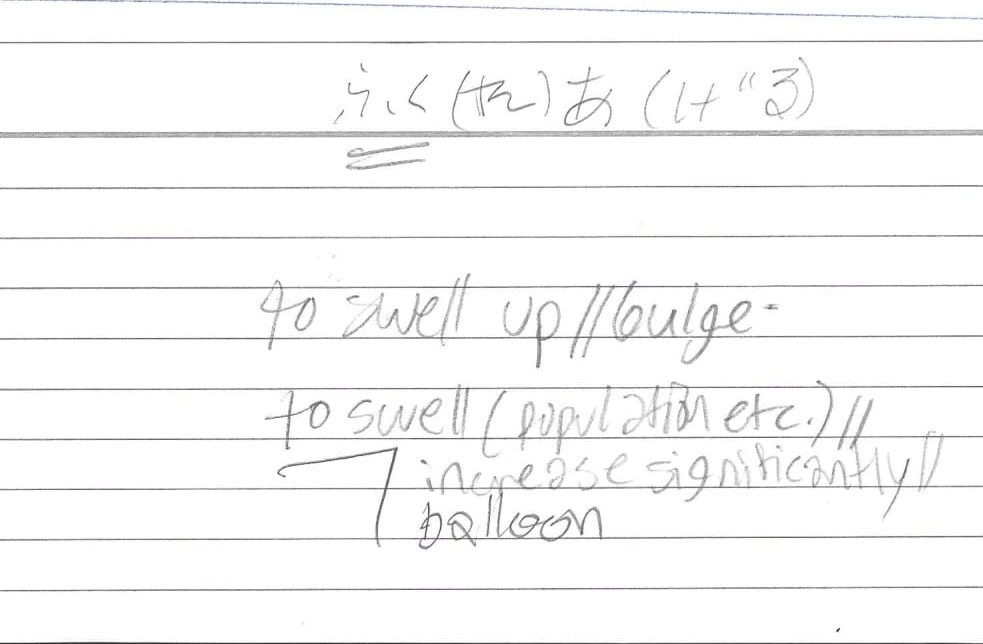 ふく(れ)あ(け"る)
to swell up//bulge-
to swell (population etc.)//
increase significantly//
balloon